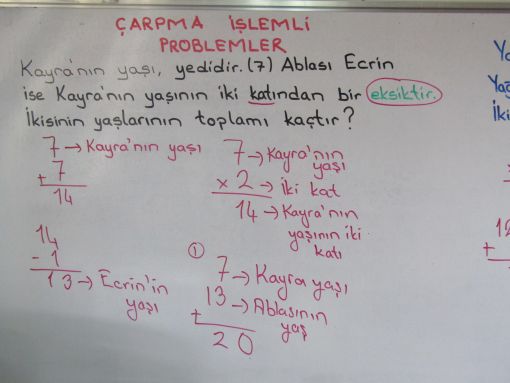 ÇARPMA İŞLEMLİ
PROBLEMLER
Kayra'nın yaşı, yedidir. (7) Ablası Ecrin
ise Kayra'nın yaşının iki katından bir eksiktir.
İkisinin yaşlarının toplamı kaçtır?
7 → Kayra'nın yaşı
+ 7
14
7 → Kayra'nın
yaşı
x 2 → İki kat
14 → Kayra'nın
yaşının iki
katı
14
- 1
13 → Ecrin'in
yaşı
①
7 → Kayra yaşı
13 → Ablasının
yaş
+
20
Ya
Yağ
İki
+